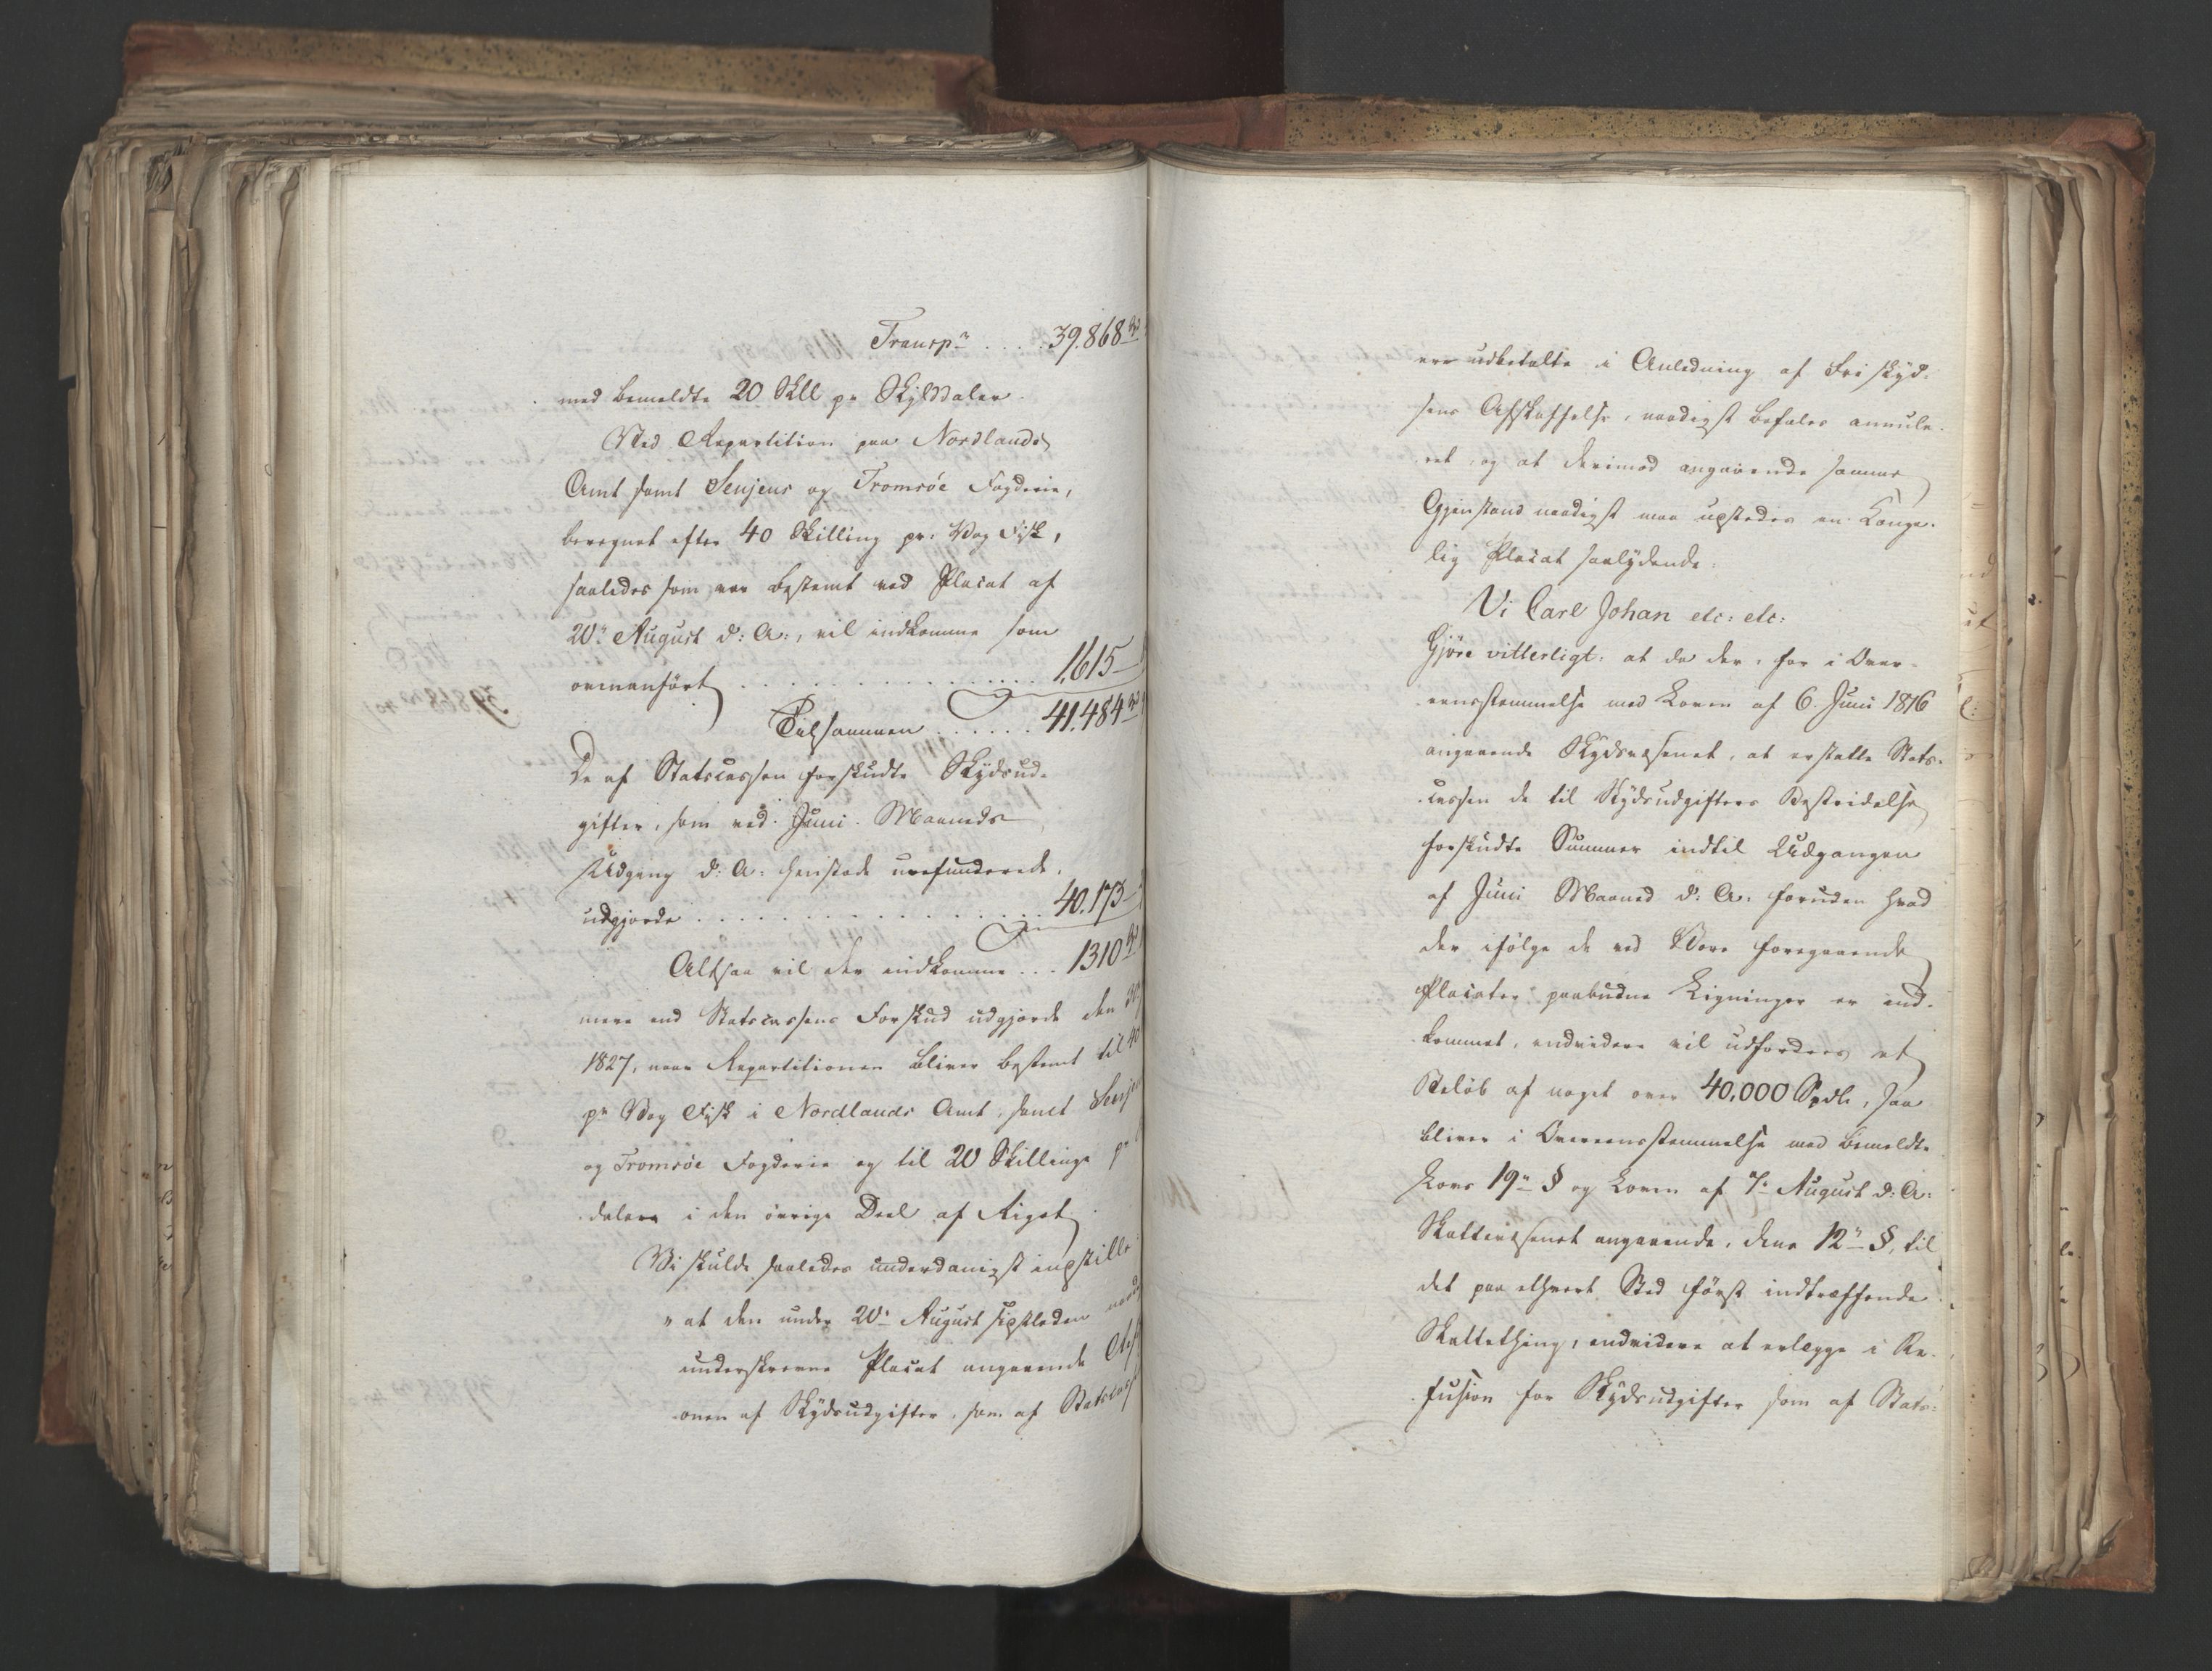 Transp. . . . . 39.868
med bemeldte 20 Skll pr Skylddaler.
Ved Repartition paa Nordlands
Amt samt Senjens og Tromsøe Fogderie,
beregnet efter 40 Skilling pr: Vog Fisk,
saaledes som var bestemt ved Placat af
20de August d: A:, vil indkomme som
ovenanført . . . . . . . . . . . . 1,615
Tilsammen . . . . . . 41.484
De af Statscassen forskudte Skydsud-
gifter, som ved Juni Maaneds
Udgang d: A: henstode urefunderede,
udgjorde . . . . . . . . . . . . . 40.173
Altsaa vil der indkomme . . . 1310
mere end Statscassens Forskud udgjorde den
1827, naar Repartitionen bliver bestemt til 40
pr Vog Fisk i Nordlands Amt, samt Senj
og Tromsøe Fogderie og til 20 Skillinge pr
daleren i den øvrige Deel af Riget.
Vi skulde saaledes underdanigst indstille
" at den under 20de August sidstleden naad
underskrevne Placat angaaende
onen af Skydsudgifter, som af Statscas
ere udbetalte i Anledning af Friskyd-
sens Afskaffelse, naadigst befales annule-
ret, og at derimod angaaende samme
Gjenstand naadigst maa udstedes en Konge-
lig Placat saalydende:
Vi Carl Johan etc: etc:
Gjøre vitterligt: at da der, for i Over-
eensstemmelse med Loven af 6. Juni 1816
angaaende Skydsvæsenet, at erstatte Stats-
cassen de til Skydsudgifters Bestridelse
forskudte Summer indtil Udgangen
af Juni Maaned d: A: foruden hvad
der ifølge de ved Vore foregaaende
Placater paabudne Ligninger er ind-
kommet, endvidere vil udfordres et
Beløb af noget over 40,000 Spdlr, saa
bliver i Overeensstemmelse med bemeldte
Lovs 19de § og Loven af 7de August d: A:
Skattevæsenet angaaende, dens 12te §, til
det paa ethvert Sted først indtræffende
Skattething, endvidere at erlægge i Re-
fusion for Skydsudgifter som af Stats-